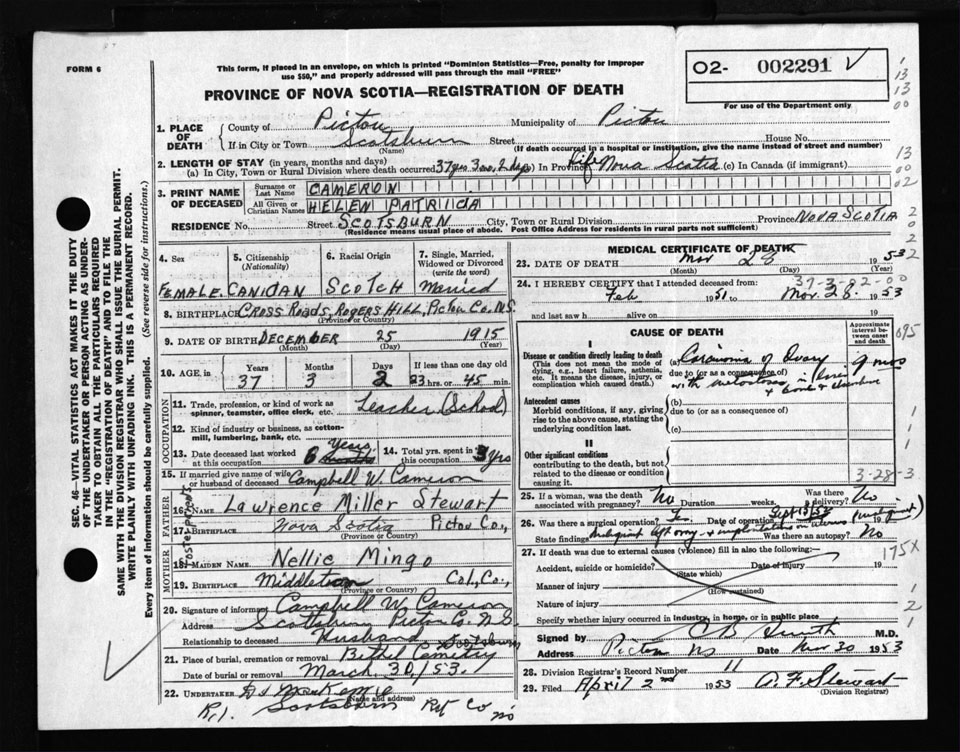 FORM 6
This form, if placed in an envelope, on which is printed "Dominion Statistics—Free, penalty for improper
use $50," and properly addressed will pass through the mail "FREE"
O2- 002291
For use of the Department only
PROVINCE OF NOVA SCOTIA—REGISTRATION OF DEATH
1. PLACE OF DEATH County of Pictou Municipality of Pictou
If in City or Town Scotsburn Street House No.
(Name) (If death occurred in a hospital or institution, give the name instead of street and number)
2. LENGTH OF STAY (in years, months and days)
(a) In City, Town or Rural Division where death occurred 37 yrs 3 mo. 2 days (b) In Province Life Nova Scotia (c) In Canada (if immigrant)
3. PRINT NAME OF DECEASED Surname or Last Name CAMERON
All Given or Christian Names HELEN PATRIDA
RESIDENCE No. Street SCOTSBURN City, Town or Rural Division Province NOVA SCOTIA
(Residence means usual place of abode. Post Office Address for residents in rural parts not sufficient)
4. Sex FEMALE
5. Citizenship (Nationality) CANIDAN
6. Racial Origin SCOTCH
7. Single, Married, Widowed or Divorced (write the word) Married
8. BIRTHPLACE CROSS ROADS, ROGERS HILL, PICTOU CO. N.S.
(Province or Country)
9. DATE OF BIRTH DECEMBER 25 1915
(Month) (Day) (Year)
10. AGE in Years Months Days If less than one day old
37 3 2 23 hrs. or 45 min.
11. Trade, profession, or kind of work as spinner, teamster, office clerk, etc. Teacher (School)
12. Kind of industry or business, as cotton-mill, lumbering, bank, etc.
13. Date deceased last worked at this occupation 6 Years
14. Total yrs. spent in this occupation 3 yrs
15. If married give name of wife or husband of deceased Campbell W. Cameron
OCCUPATION
FATHER
Foster Parents
16. Name Lawrence Miller Stewart
17. Birthplace Nova Scotia Pictou Co.,
(Province or Country)
MOTHER
18. MAIDEN NAME Nellie Mingo
19. BIRTHPLACE Middleton Col. Co.,
(Province or Country)
20. Signature of informant Campbell W. Cameron
Address Scotsburn Pictou Co. N.S.
Relationship to deceased Husband
21. Place of burial, cremation or removal Bethel Cemetry Scotsburn
Date of burial or removal March 30/53.
22. UNDERTAKER
(Name and address)
R.1. Scotsburn Pict Co NS
MEDICAL CERTIFICATE OF DEATH
23. DATE OF DEATH Mar 28 1953
(Month) (Day) (Year)
37-3-02-0-0
24. I HEREBY CERTIFY that I attended deceased from:
Feb 1951 to Mar. 28 1953
and last saw h alive on 19
CAUSE OF DEATH
Approximate interval between onset and death
I
Disease or condition directly leading to death (a) Carcinoma of Ovary 9 mos
(This does not mean the mode of dying, e.g., heart failure, asthenia, etc. It means the disease, injury, or complication which caused death.)
due to (or as a consequence of)
Antecedent causes (b)
Morbid conditions, if any, giving rise to the above cause, stating the underlying condition last.
due to (or as a consequence of)
(c)
II
Other significant conditions
contributing to the death, but not related to the disease or condition causing it
3-28-3
25. If a woman, was the death associated with pregnancy? No Duration weeks. Was there delivery? No
26. Was there a surgical operation? Yes. Date of operation Sept 13/52 19
State findings Was there an autopsy? No
27. If death was due to external causes (violence) fill in also the following:—
Accident, suicide or homicide? Date of injury 19
(State which)
Manner of injury
(How sustained)
Nature of injury
Specify whether injury occurred in industry, in home, or in public place
175X
Signed by C B Smith M.D.
Address Pictou NS Date Mar 30 1953
28. Division Registrar's Record Number 11
29. Filed April 2nd 1953 A. F. Stewart
(Division Registrar)
SEC. 46—VITAL STATISTICS ACT MAKES IT THE DUTY
OF THE UNDERTAKER OR PERSON ACTING AS UNDER-
TAKER TO OBTAIN ALL THE PARTICULARS REQUIRED
IN THE "REGISTRATION OF DEATH" AND TO FILE THE
SAME WITH THE DIVISION REGISTRAR WHO SHALL ISSUE THE BURIAL PERMIT.
WRITE PLAINLY WITH UNFADING INK. THIS IS A PERMANENT RECORD.
Every item of information should be carefully supplied. (See reverse side for instructions.)